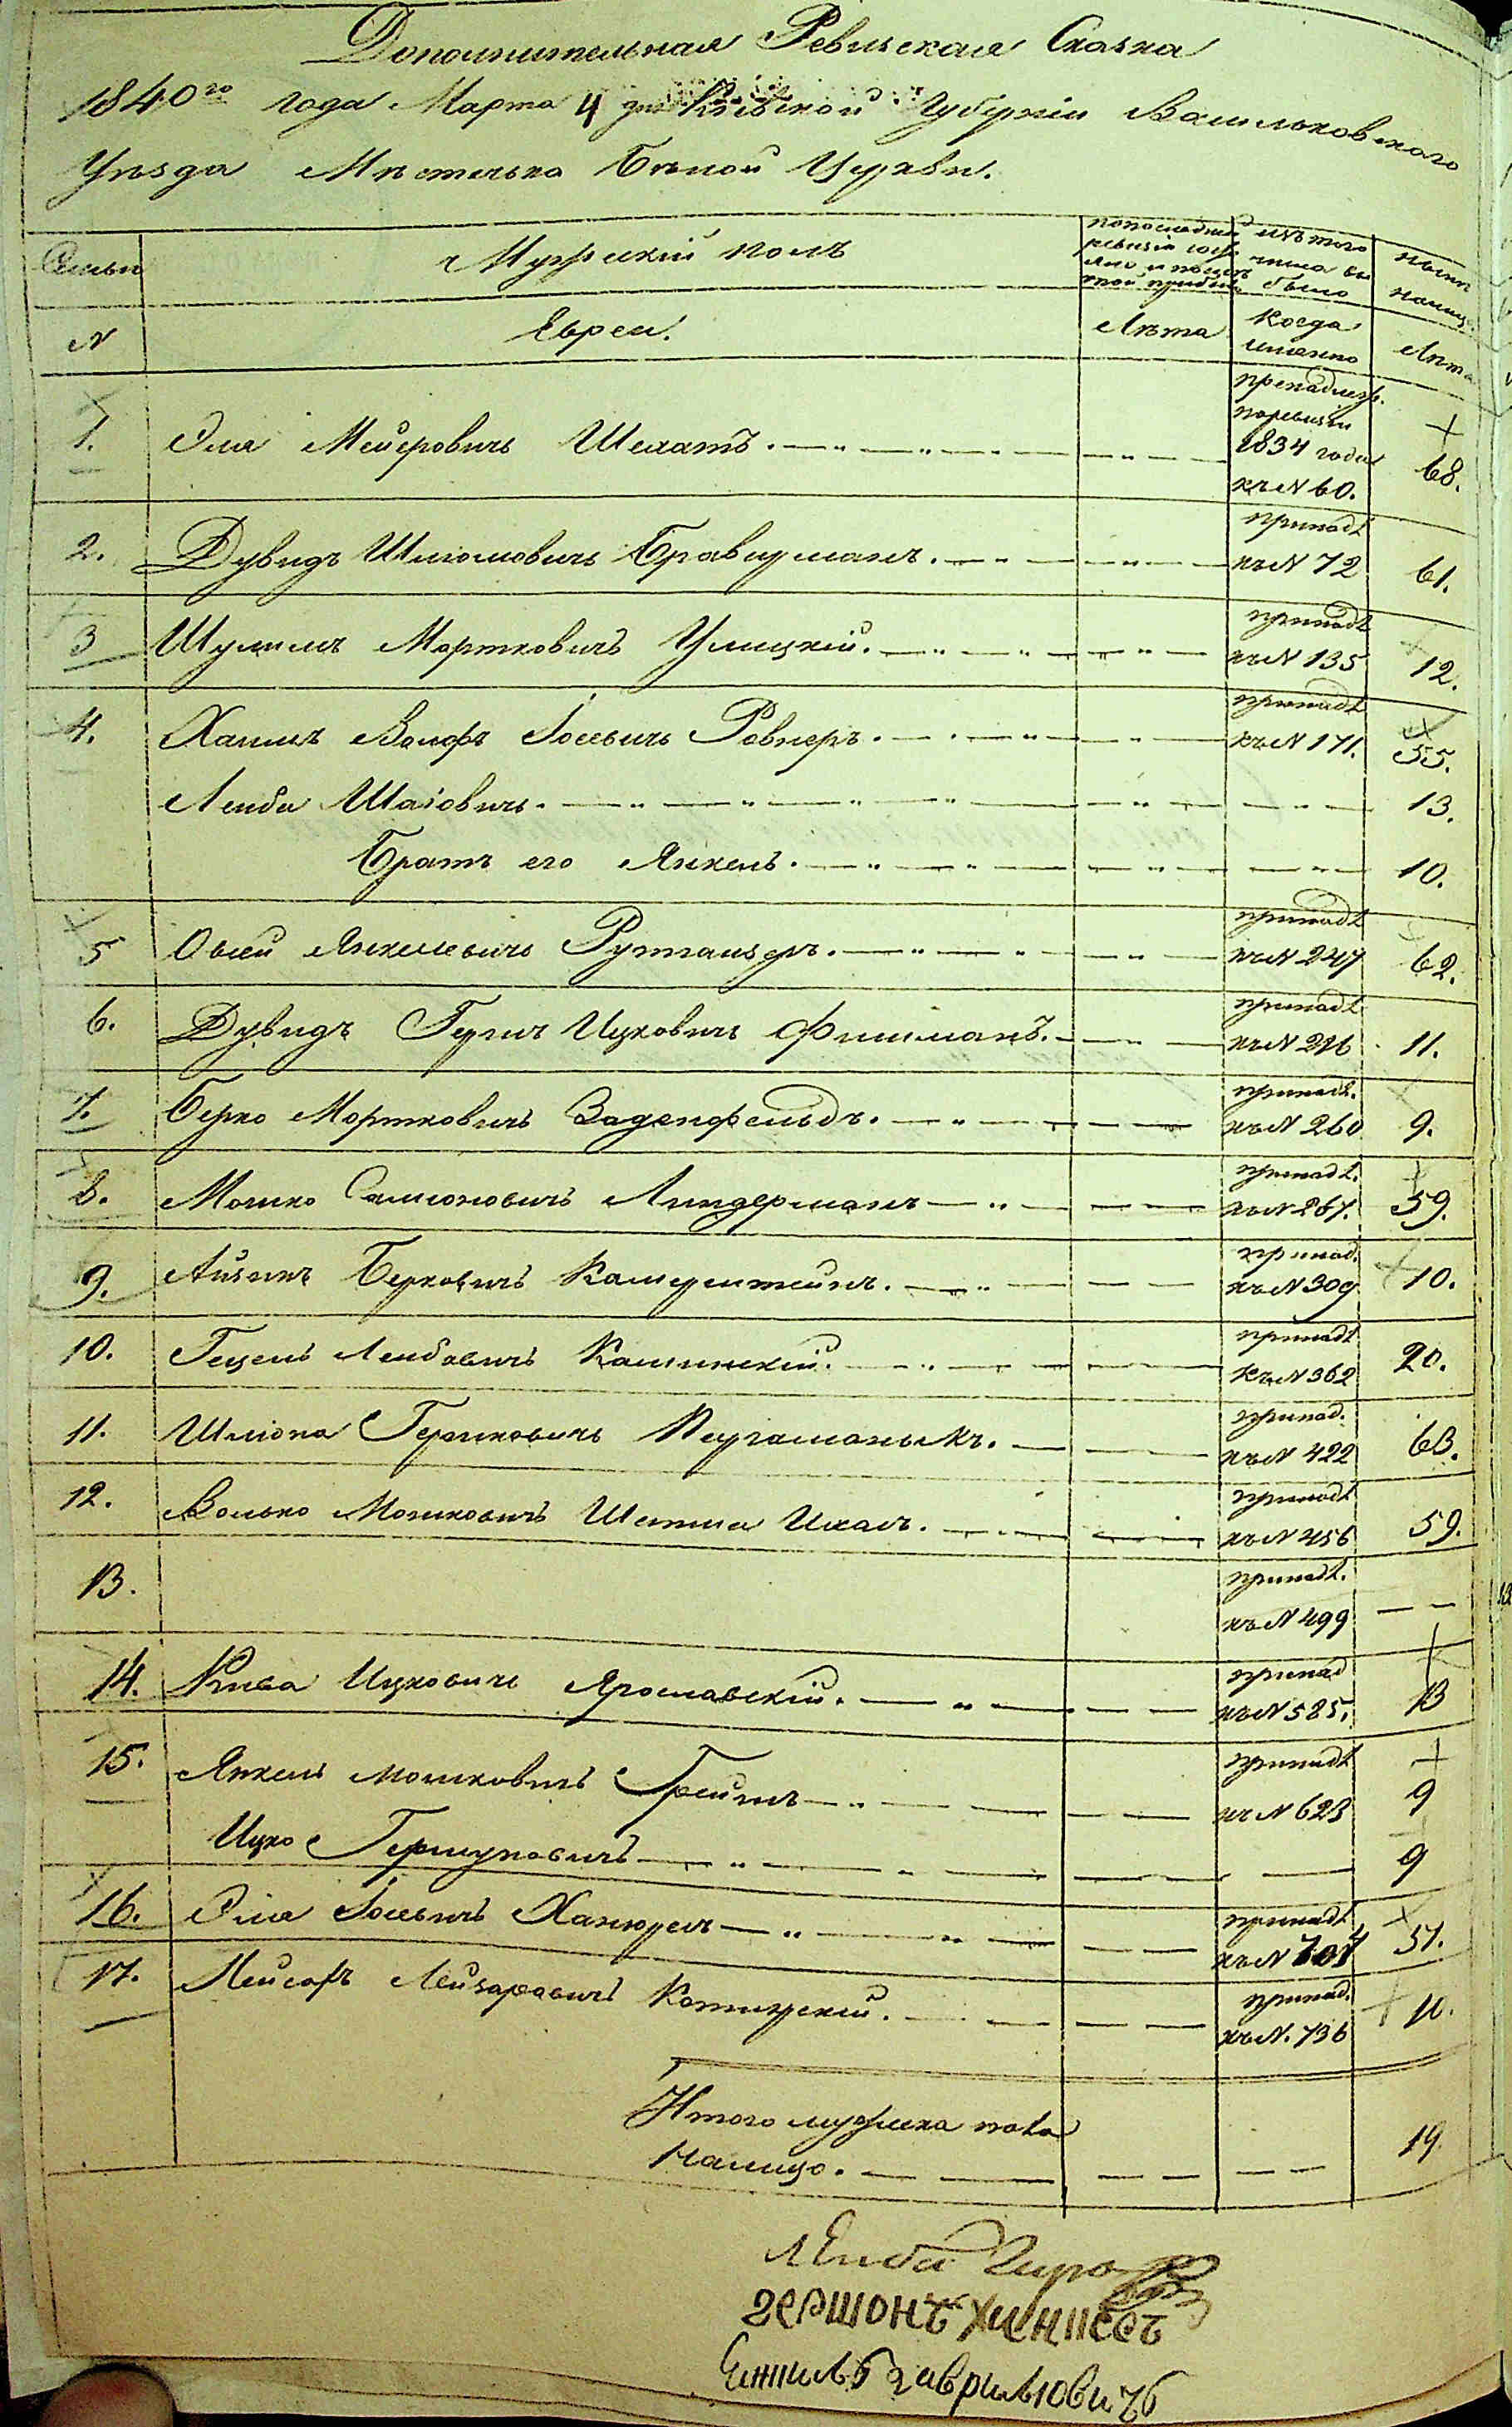 Дополнительная Ревизская Сказка
1840го года Марта 4 дня Кіевской Губерніи Васильковского
Уѣзда Мѣстечка Бѣлой Церкви.
Семьи
Мужескій полъ
по последней ревизіи состояло и после той прибыло
изъ того числа выбыло
нынѣ на лицо
N
Евреи.
Лѣта
Когда именно
Лѣта
1. Эля Меировичь Шехатъ.
принадлеж. по ревизіи 1834 года къ N 60. 68.
2. Дувидъ Шлiомовичь Браверманъ. принадл. къ N 72 61.
3 Шулимъ Мортковичъ Улицкій. принадл. къ N 135 12.
4. Хаимъ Волфъ Іосевичь Ровнеръ. принадл. къ N 171. 55.
Лейба Шаіовичь. 13.
Братъ его Янкель. 10.
5 Овсей Янкелевичь Рутгаизеръ. принадл. къ N 247 62.
6. Дувидъ Гершъ Ицковичь Фишманъ. принадл. къ N 216 11.
7. Берко Мортковичъ Заденфельдъ. принадл. къ N 260 9.
8. Мошко Самсоновичъ Линдерманъ принадл. къ N 267. 59.
9. Айзикъ Берковичъ Калмерштейнъ. принад. къ N 309 10.
10. Гецель Лейбовичъ Калинскій. принадл. къ N 362 20.
11. Шліома Гершковичь принад. къ N 422 63.
12. Волько Мошковичъ принадл. къ N 456 59.
13. принадл. къ N 499
14. Кива Ицковичъ Ярославскій. принад къ N 585. 13
15. Янкель Мошковичъ принадл. къ N 623 9
Ицко Гершуновичъ 9
16. Эля Іосевичъ принадл. къ N 51.
17. Лейзаровичъ принад. къ N. 736 10.
Итого мужеска пола
Налицо. 19
Лейба
гершонъ
гавриловичъ